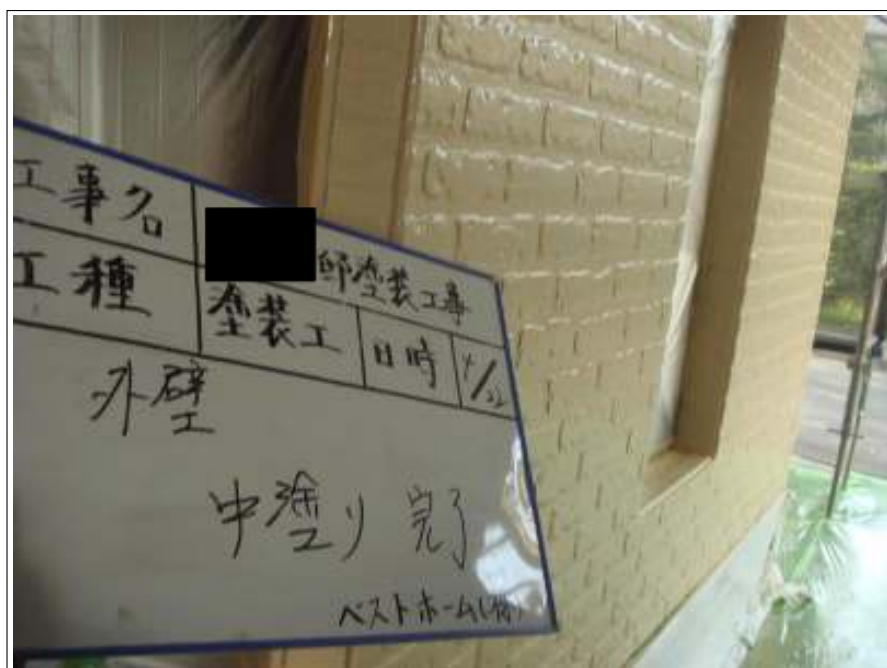 工事名 邸塗装工事
工種 塗装工 日時 4/22
外壁
中塗り 完了
ベストホーム(株)